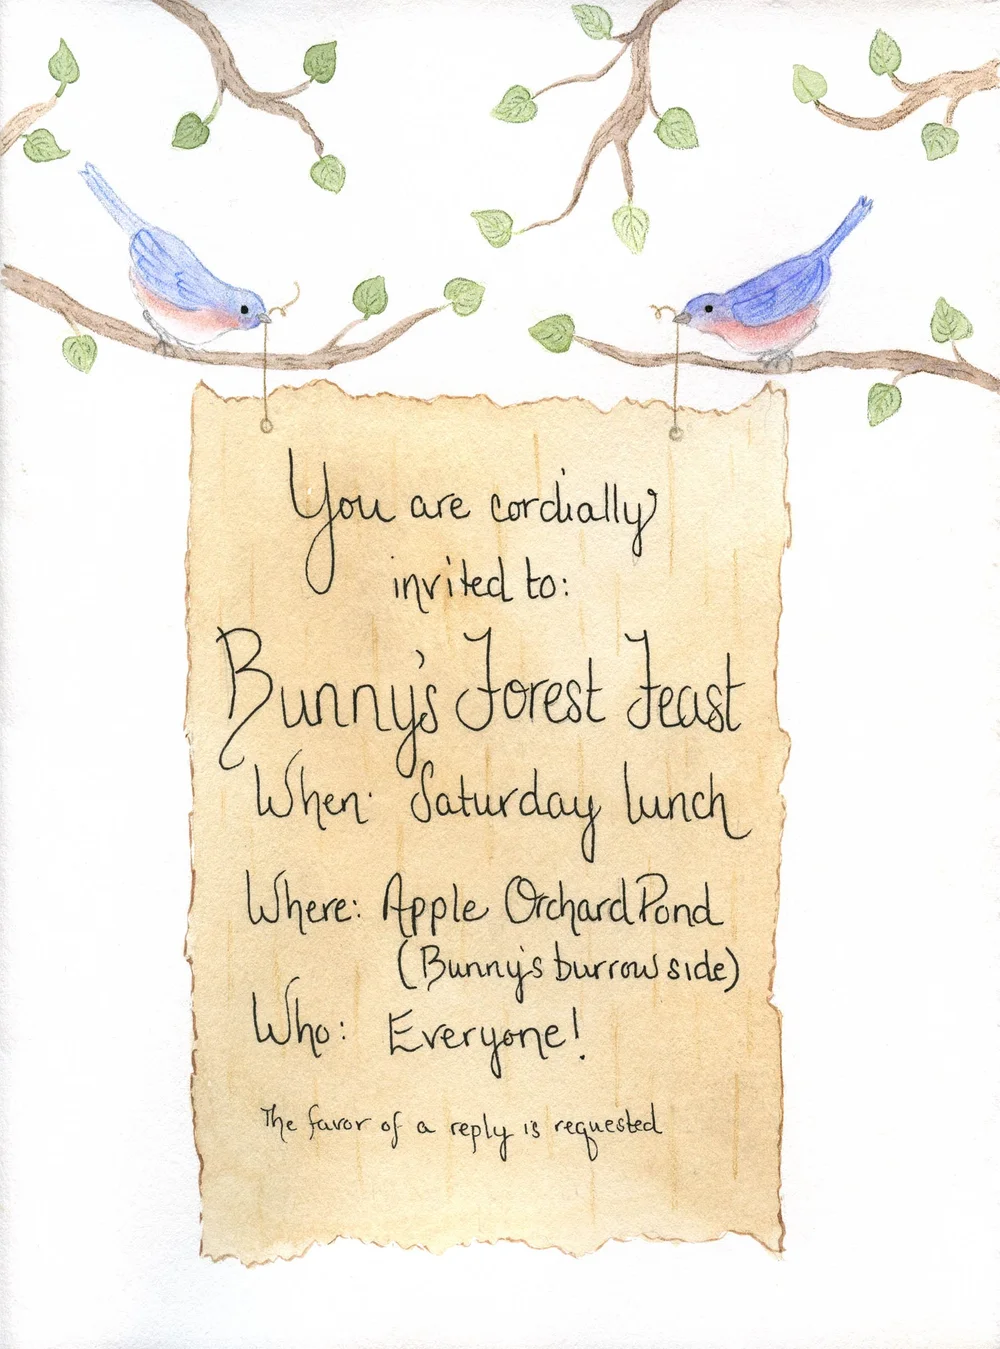 You are cordially
invited to:
Bunny's Forest Feast
When: Saturday lunch
Where: Apple Orchard Pond
(Bunny's burrow side)
Who: Everyone!
The favor of a reply is requested